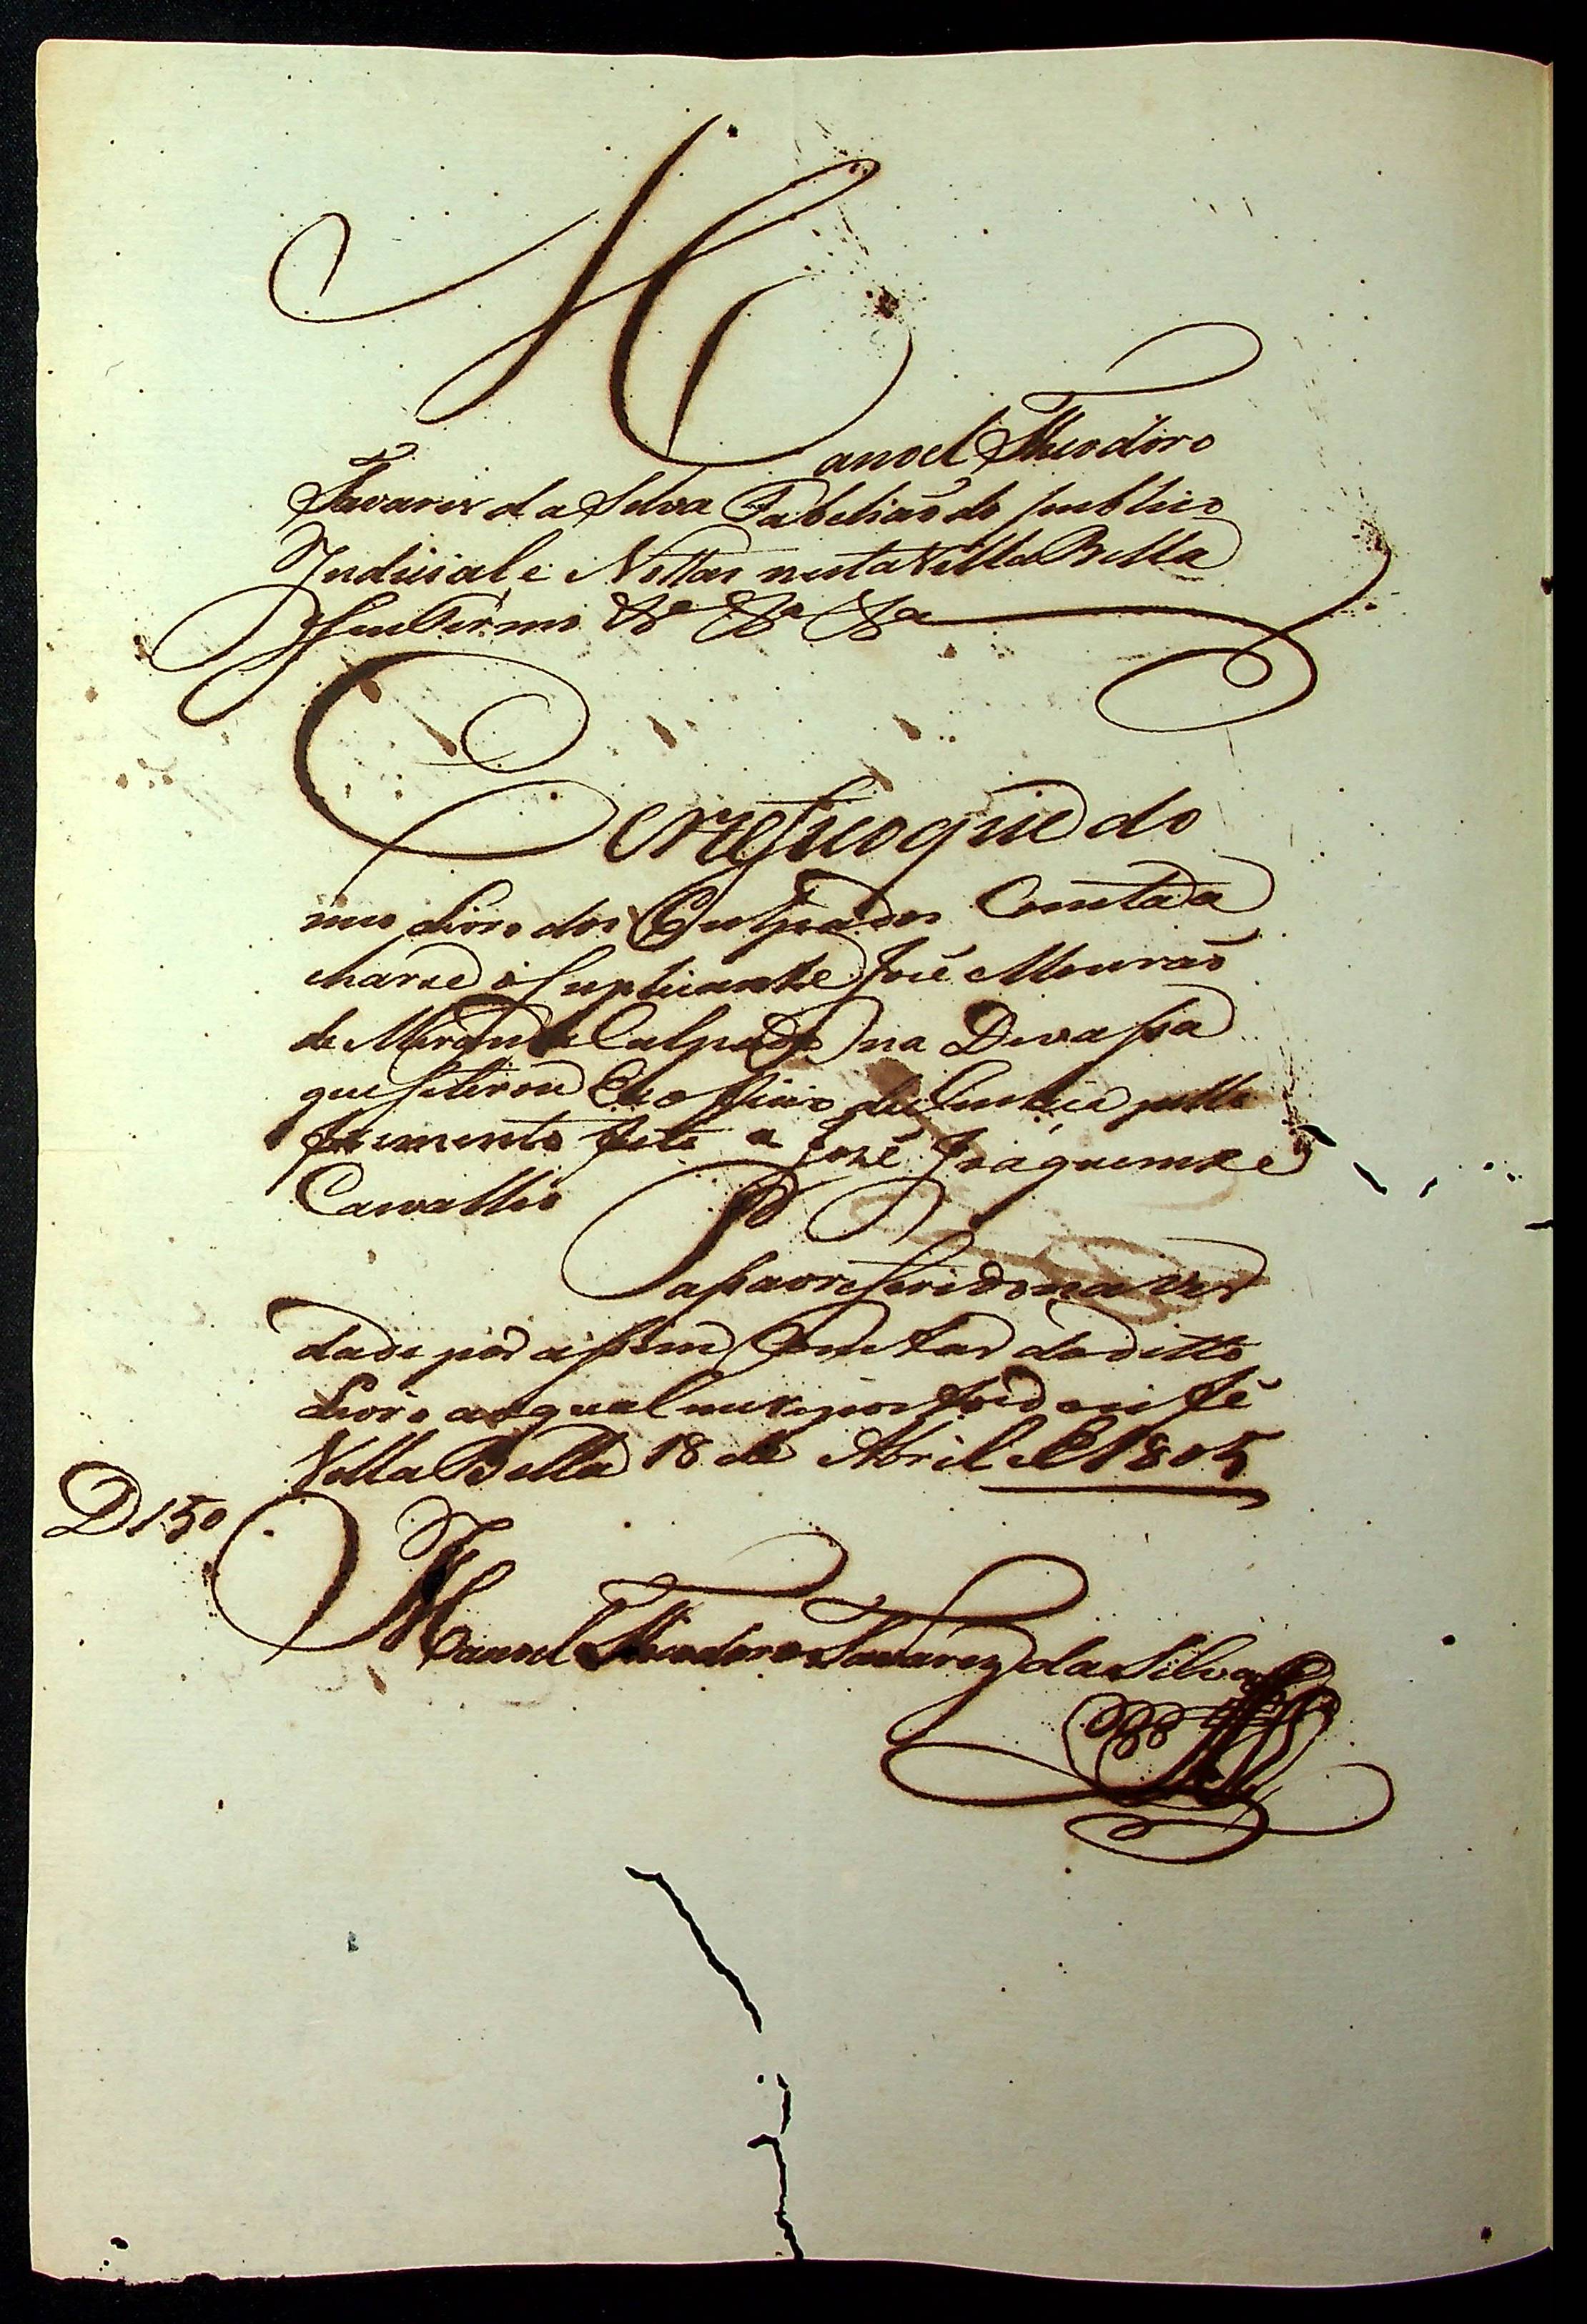 Manoel Theodoro
Tavares da Silva Tabeliaõ do publico
Judicial e Nottas nesta Villa Bella
e seu Termo &ª &ª &ª
Certefico que do
meo Livro dos Culpados Consta a
charse o Suplicante José Mouraõ
de Miranda Culpado na Devassa
que se tirou Ex officio da Justica pello
ferimento feito a José
Carvalho
Passa o referido na ver
dade por assim Constar do ditto
Livro ao qual me reporto do que dou fé
Villa Bella 18 de Abril de 1805
D 150
Manoel Theodoro Tavarez da Silva